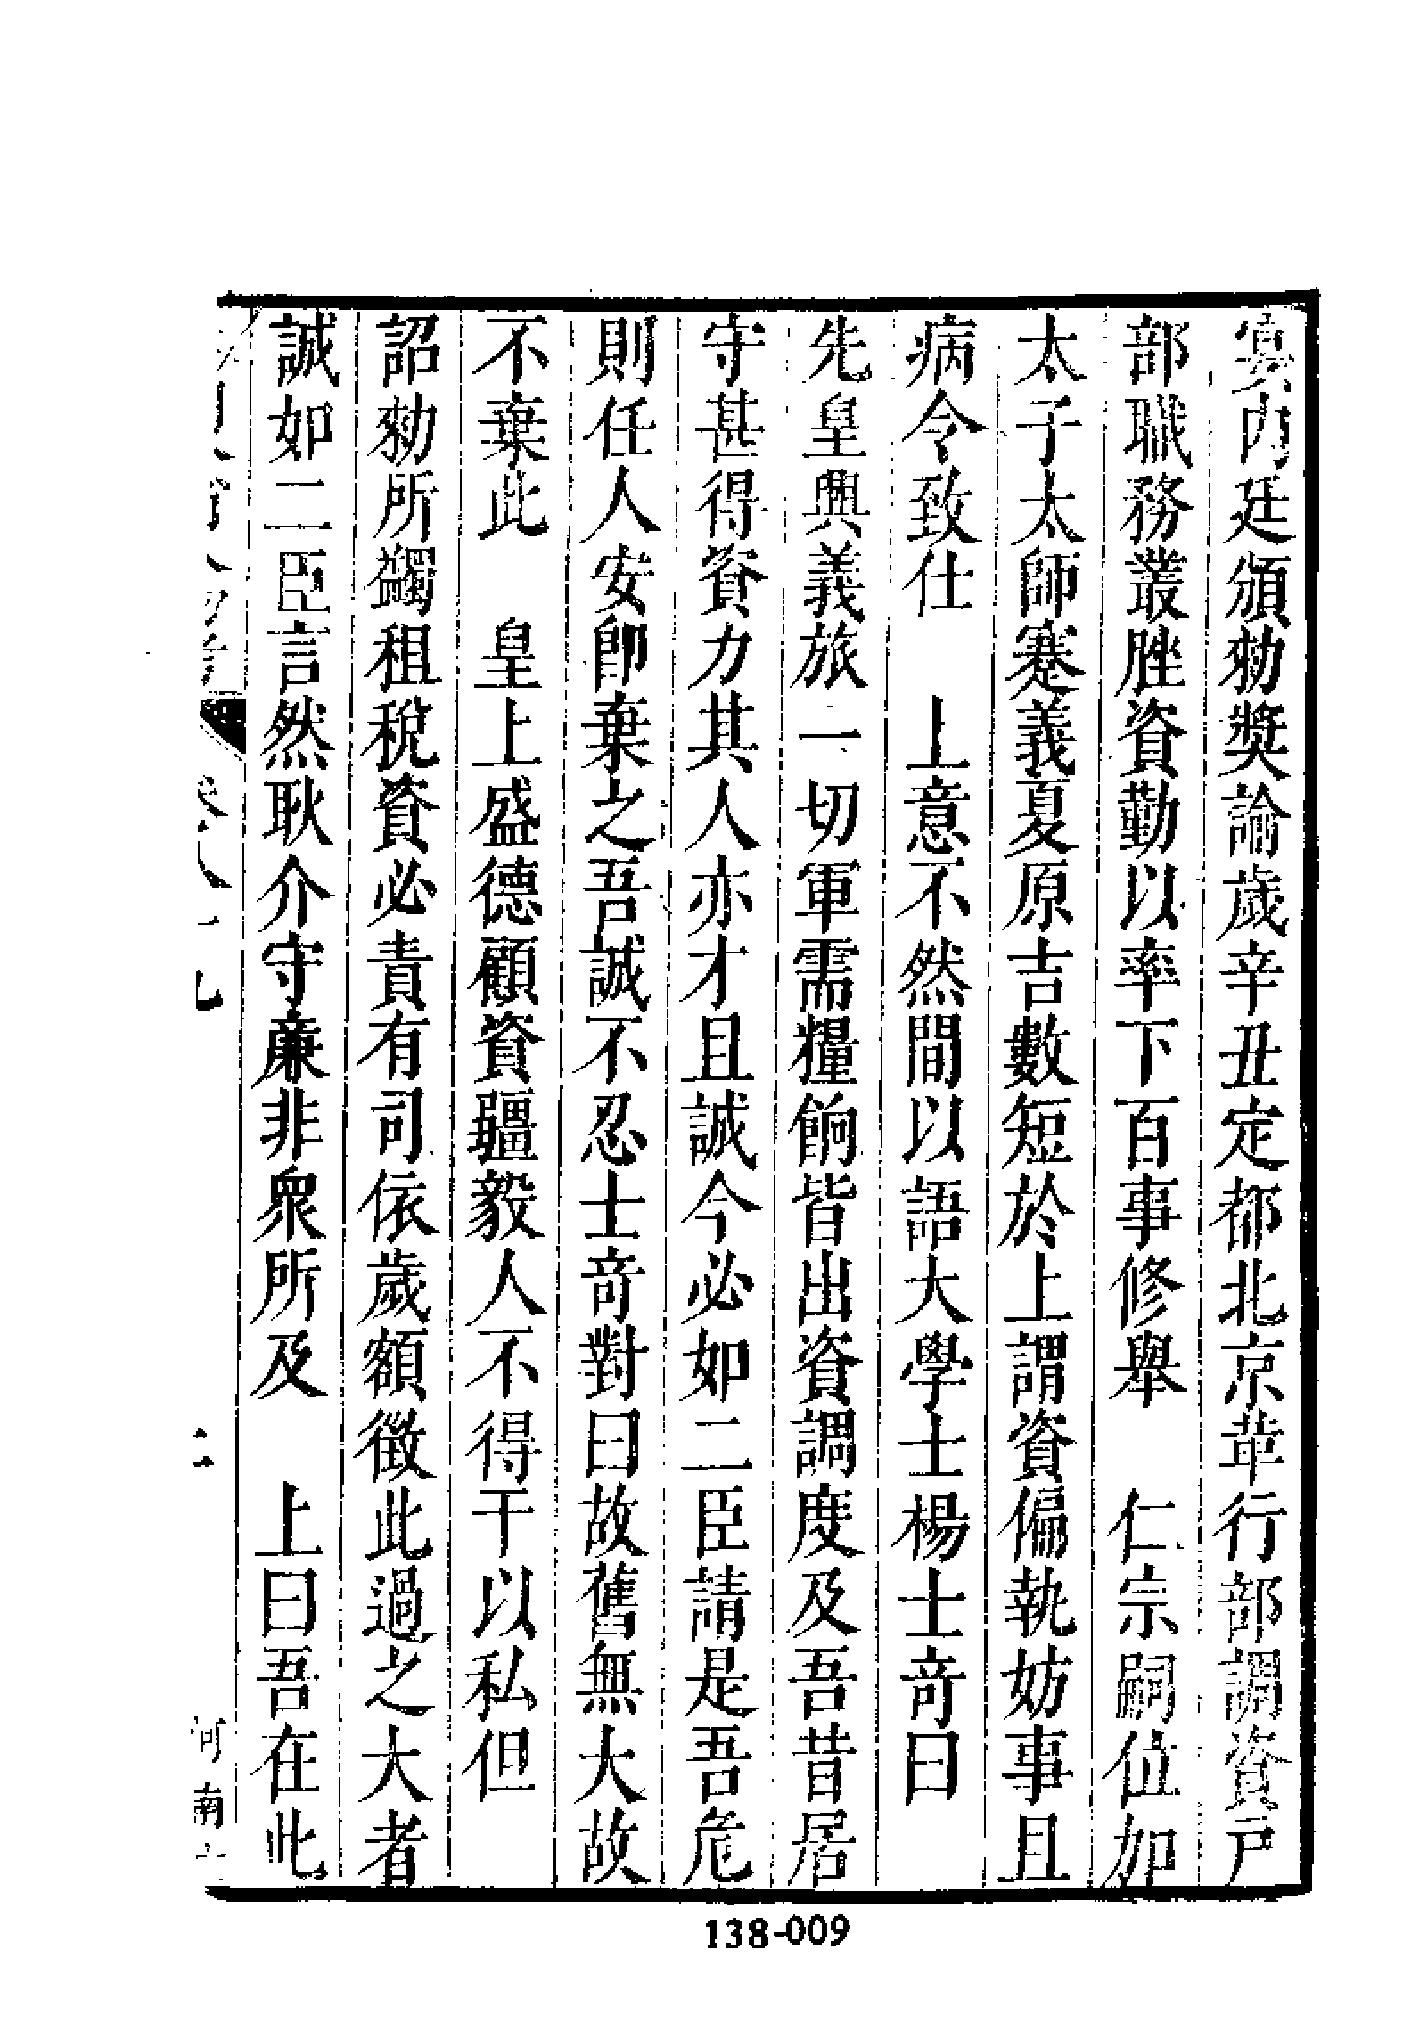 寘內廷頒勑奬諭歲辛丑定都北京革行部調資戶
部職務叢脞資勤以率下百事修舉　仁宗嗣位加
太子太師蹇義夏原吉數短於上謂資偏執妨事且
病令致仕　上意不然間以語大學士楊士竒曰
先皇興義旅一切軍需糧餉皆出資調度及吾昔居
守甚得資力其人亦才且誠今必如二臣請是吾危
則任人安卽棄之吾誠不忍士竒對曰故舊無大故
不棄此　皇上盛德顧資疆毅人不得干以私但
詔勑所蠲租稅資必責有司依歲額徵此過之大者
誠如二臣言然耿介守廉非衆所及　上曰吾在此
卷八十九
二
河南
138-009